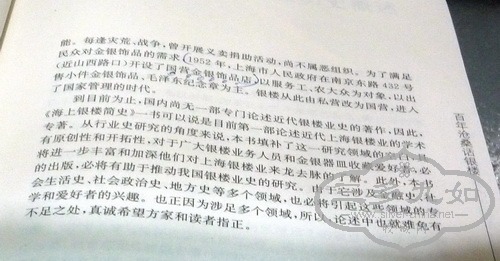 能。每逢灾荒、战争，曾开展义卖捐助活动，尚不属恶组织。为了满足
民众对金银饰品的需求，1952年，上海市人民政府在南京东路432号
（近山西路口）开设了国营金银饰品店，以服务工、农大众为对象，以出
售小件金银饰品、毛泽东纪念章为主。银楼从此由私营改为国营，进入
了国家管理的时代。
到目前为止，国内尚无一部专门论述近代银楼业史的著作，因此，
《海上银楼简史》一书可以说是目前第一部论述近代上海银楼业的学术
专著。从行业史研究的角度来说，本书填补了这一研究领域的空白，具
有原创性和开拓性，对于广大银楼业务人员和金银器皿收藏爱好者，必
将进一步丰富和加深他们对上海银楼业来龙去脉的了解。此外，本书
的出版，必将有助于推动我国银楼业史的研究。由于它涉及金融史、社
会生活史、社会政治史、地方史等多个领域，也必将引起这些领域的专
学和爱好者的兴趣。也正因为涉足多个领域，所以，论述中也就难免有
不足之处，真诚希望方家和读者指正。
百年沧桑话银楼